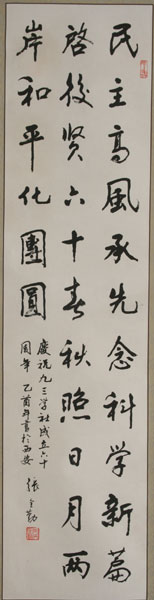 民主高風承先念科学新篇
啓後贤六十春秋照日月两
岸和平化團圓
慶祝九三学社成立六十
周年 乙酉年書於西安 張